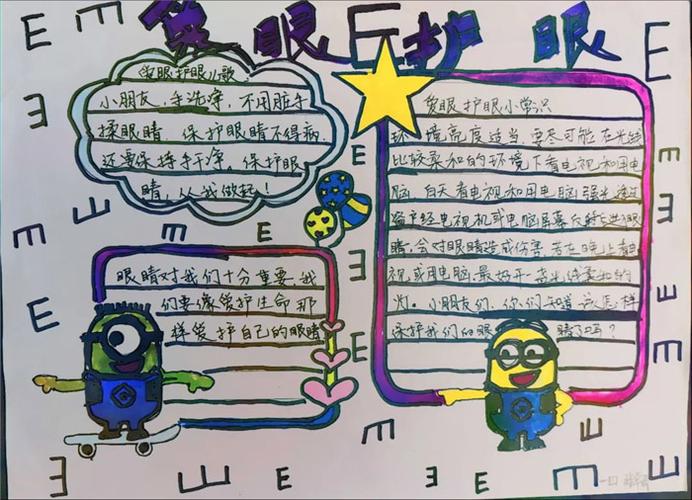 爱眼与护眼
爱眼护眼儿歌:
小朋友,手洗净,不用脏手
揉眼睛 保护眼睛不得病.
还要保持手干净,保护眼
睛,从我做起!
爱眼护眼小常识
环境亮度适当,要尽可能在光线
比较柔和的环境下看电视和用电
脑 白天看电视和用电脑强光透过
窗户经电视机或电脑屏幕反射进入眼
睛,会对眼睛造成伤害.若在晚上看电
视或用电脑,最好开一盏光线柔和的
灯。小朋友们,你们知道该怎样
保护我们的眼睛了吗?
眼睛对我们十分重要,我
们要像爱护生命那
样爱护自己的眼睛